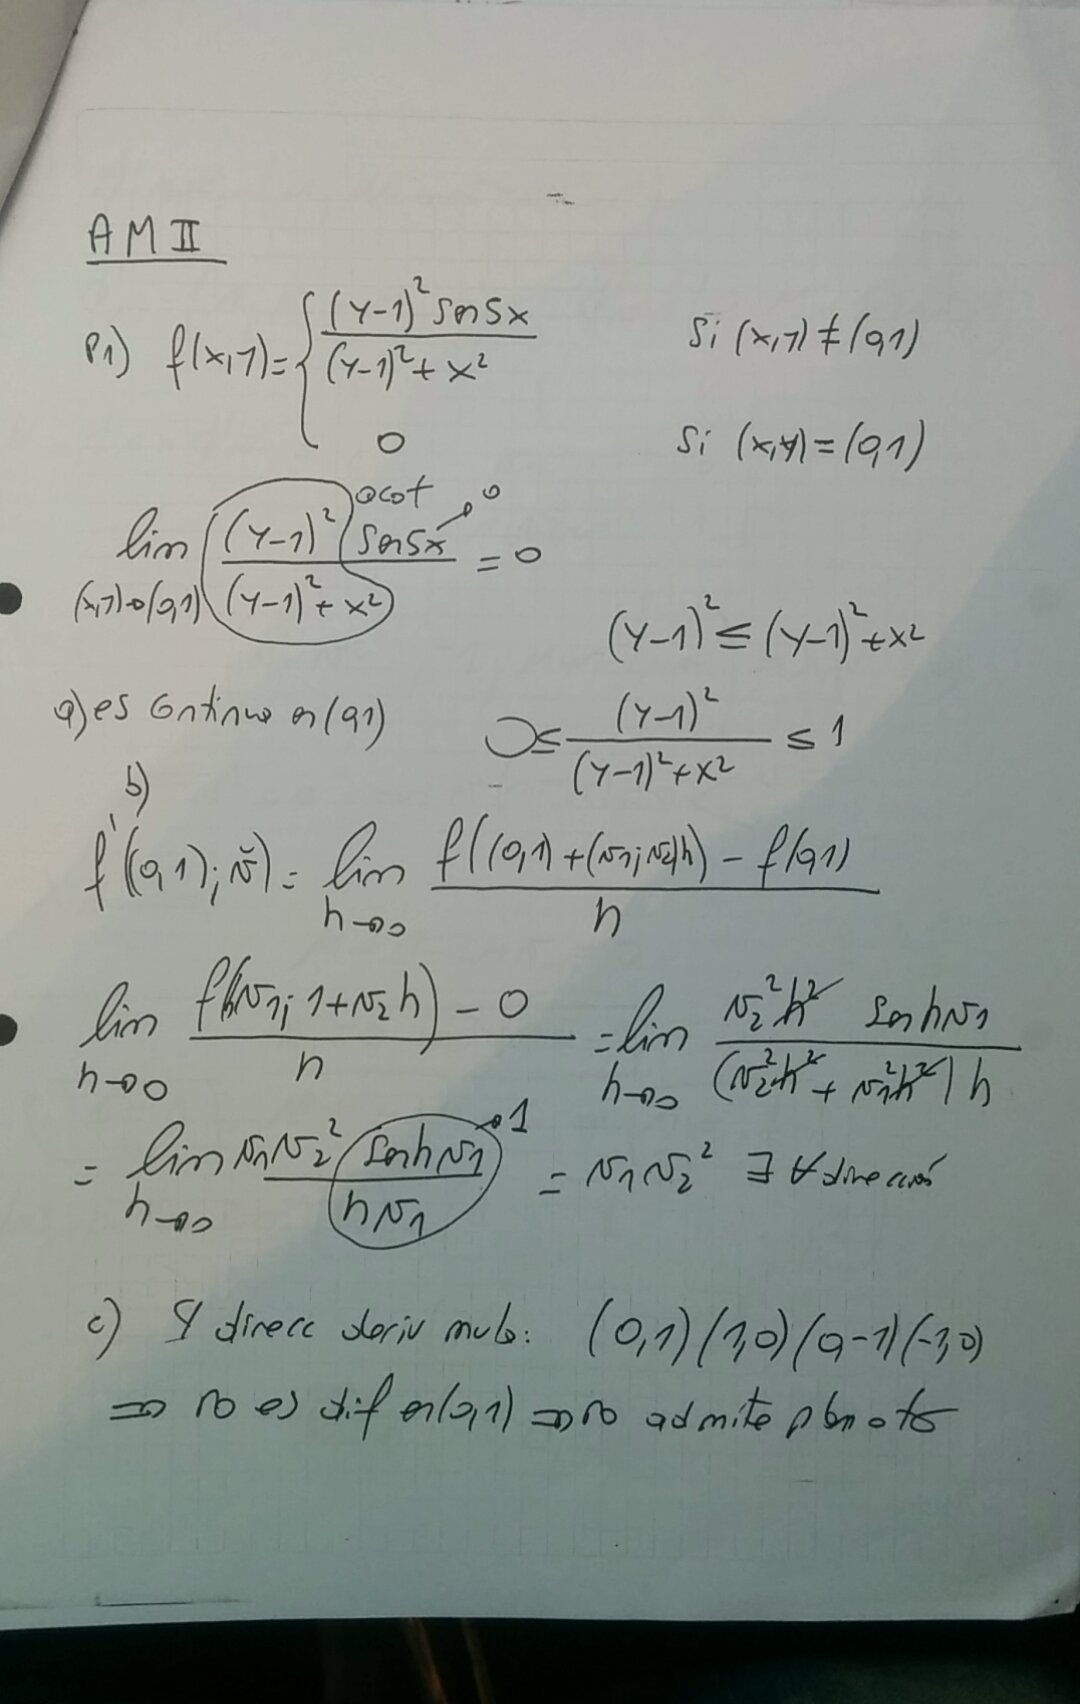 AM II
P1) f(x,y) = { (y-1)² sen 5x / (y-1)² + x²   Si (x,y) ≠ (0,1)
0   Si (x,y) = (0,1)
lim (x,y)→(0,1) (y-1)² sen 5x / (y-1)² + x² = 0   acot → 0
(y-1)² ≤ (y-1)² + x²
a) es continuo en (0,1)   0 ≤ (y-1)² / (y-1)² + x² ≤ 1
b)
f'((0,1); v̌) = lim h→0 f((0,1) + (v1; v2)h) - f(0,1) / h
lim h→0 f(hv1; 1+v2h) - 0 / h = lim h→0 v2² h² sen hv1 / (v2² h² + v1² h²) h
= lim h→0 v1 v2² sen hv1 / hv1 → 1 = v1 v2² ∃ ∀ dirección
c) 4 direcc deriv nula: (0,1) (1,0) (0,-1) (-1,0)
⇒ no es dif en (0,1) ⇒ no admite plano tg